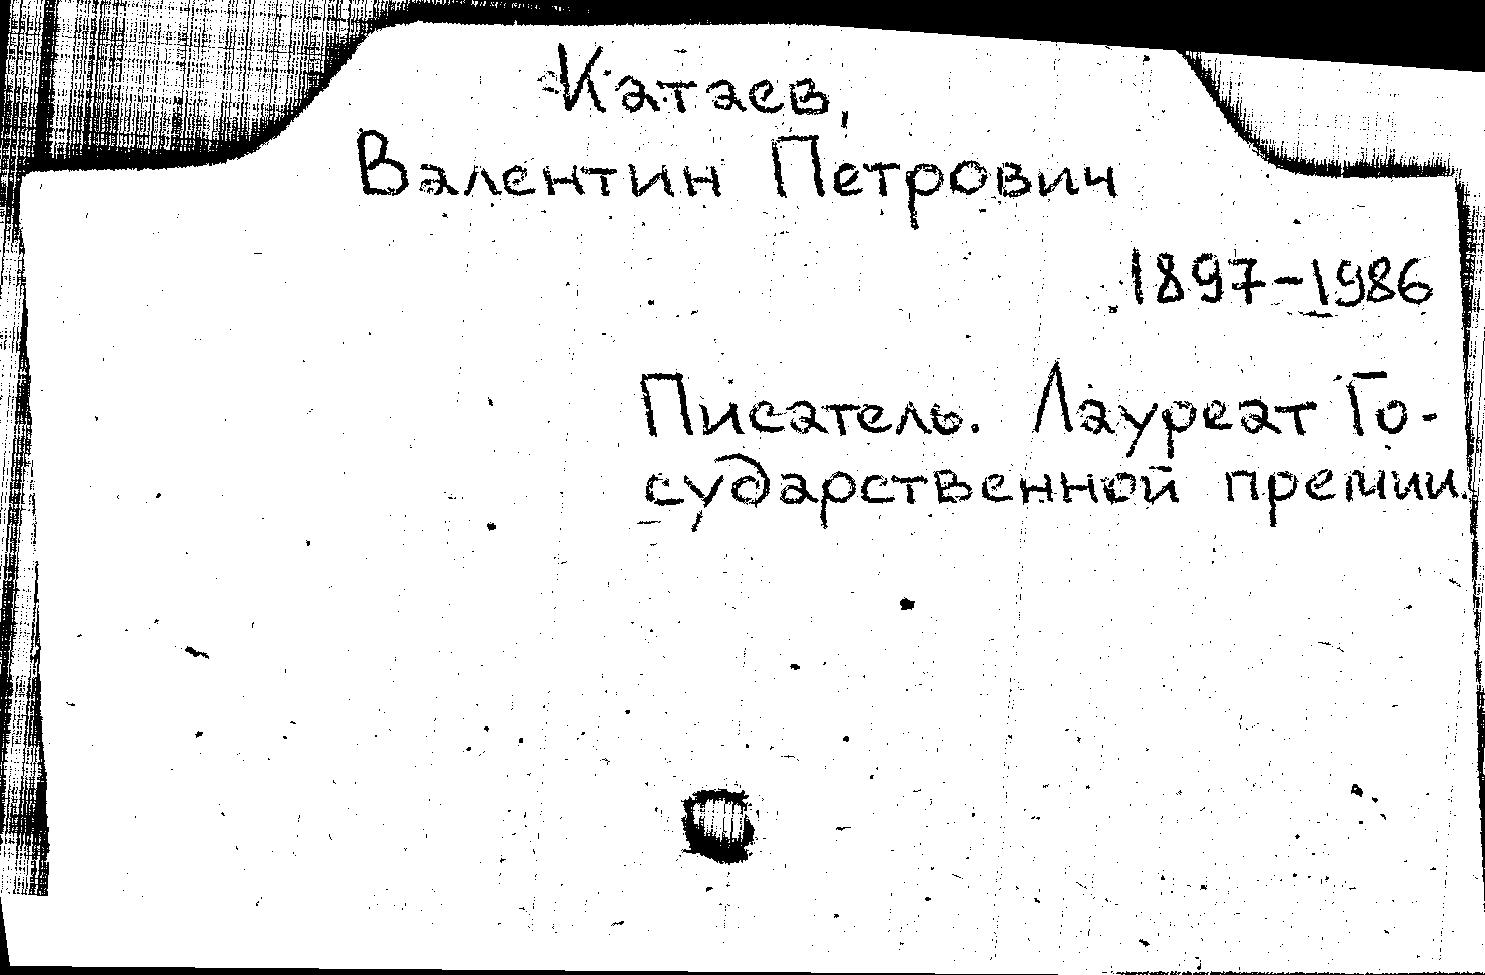 Катаев,
Валентин Петрович
1897-1986
Писатель. Лауреат Го-
сударственной премии.